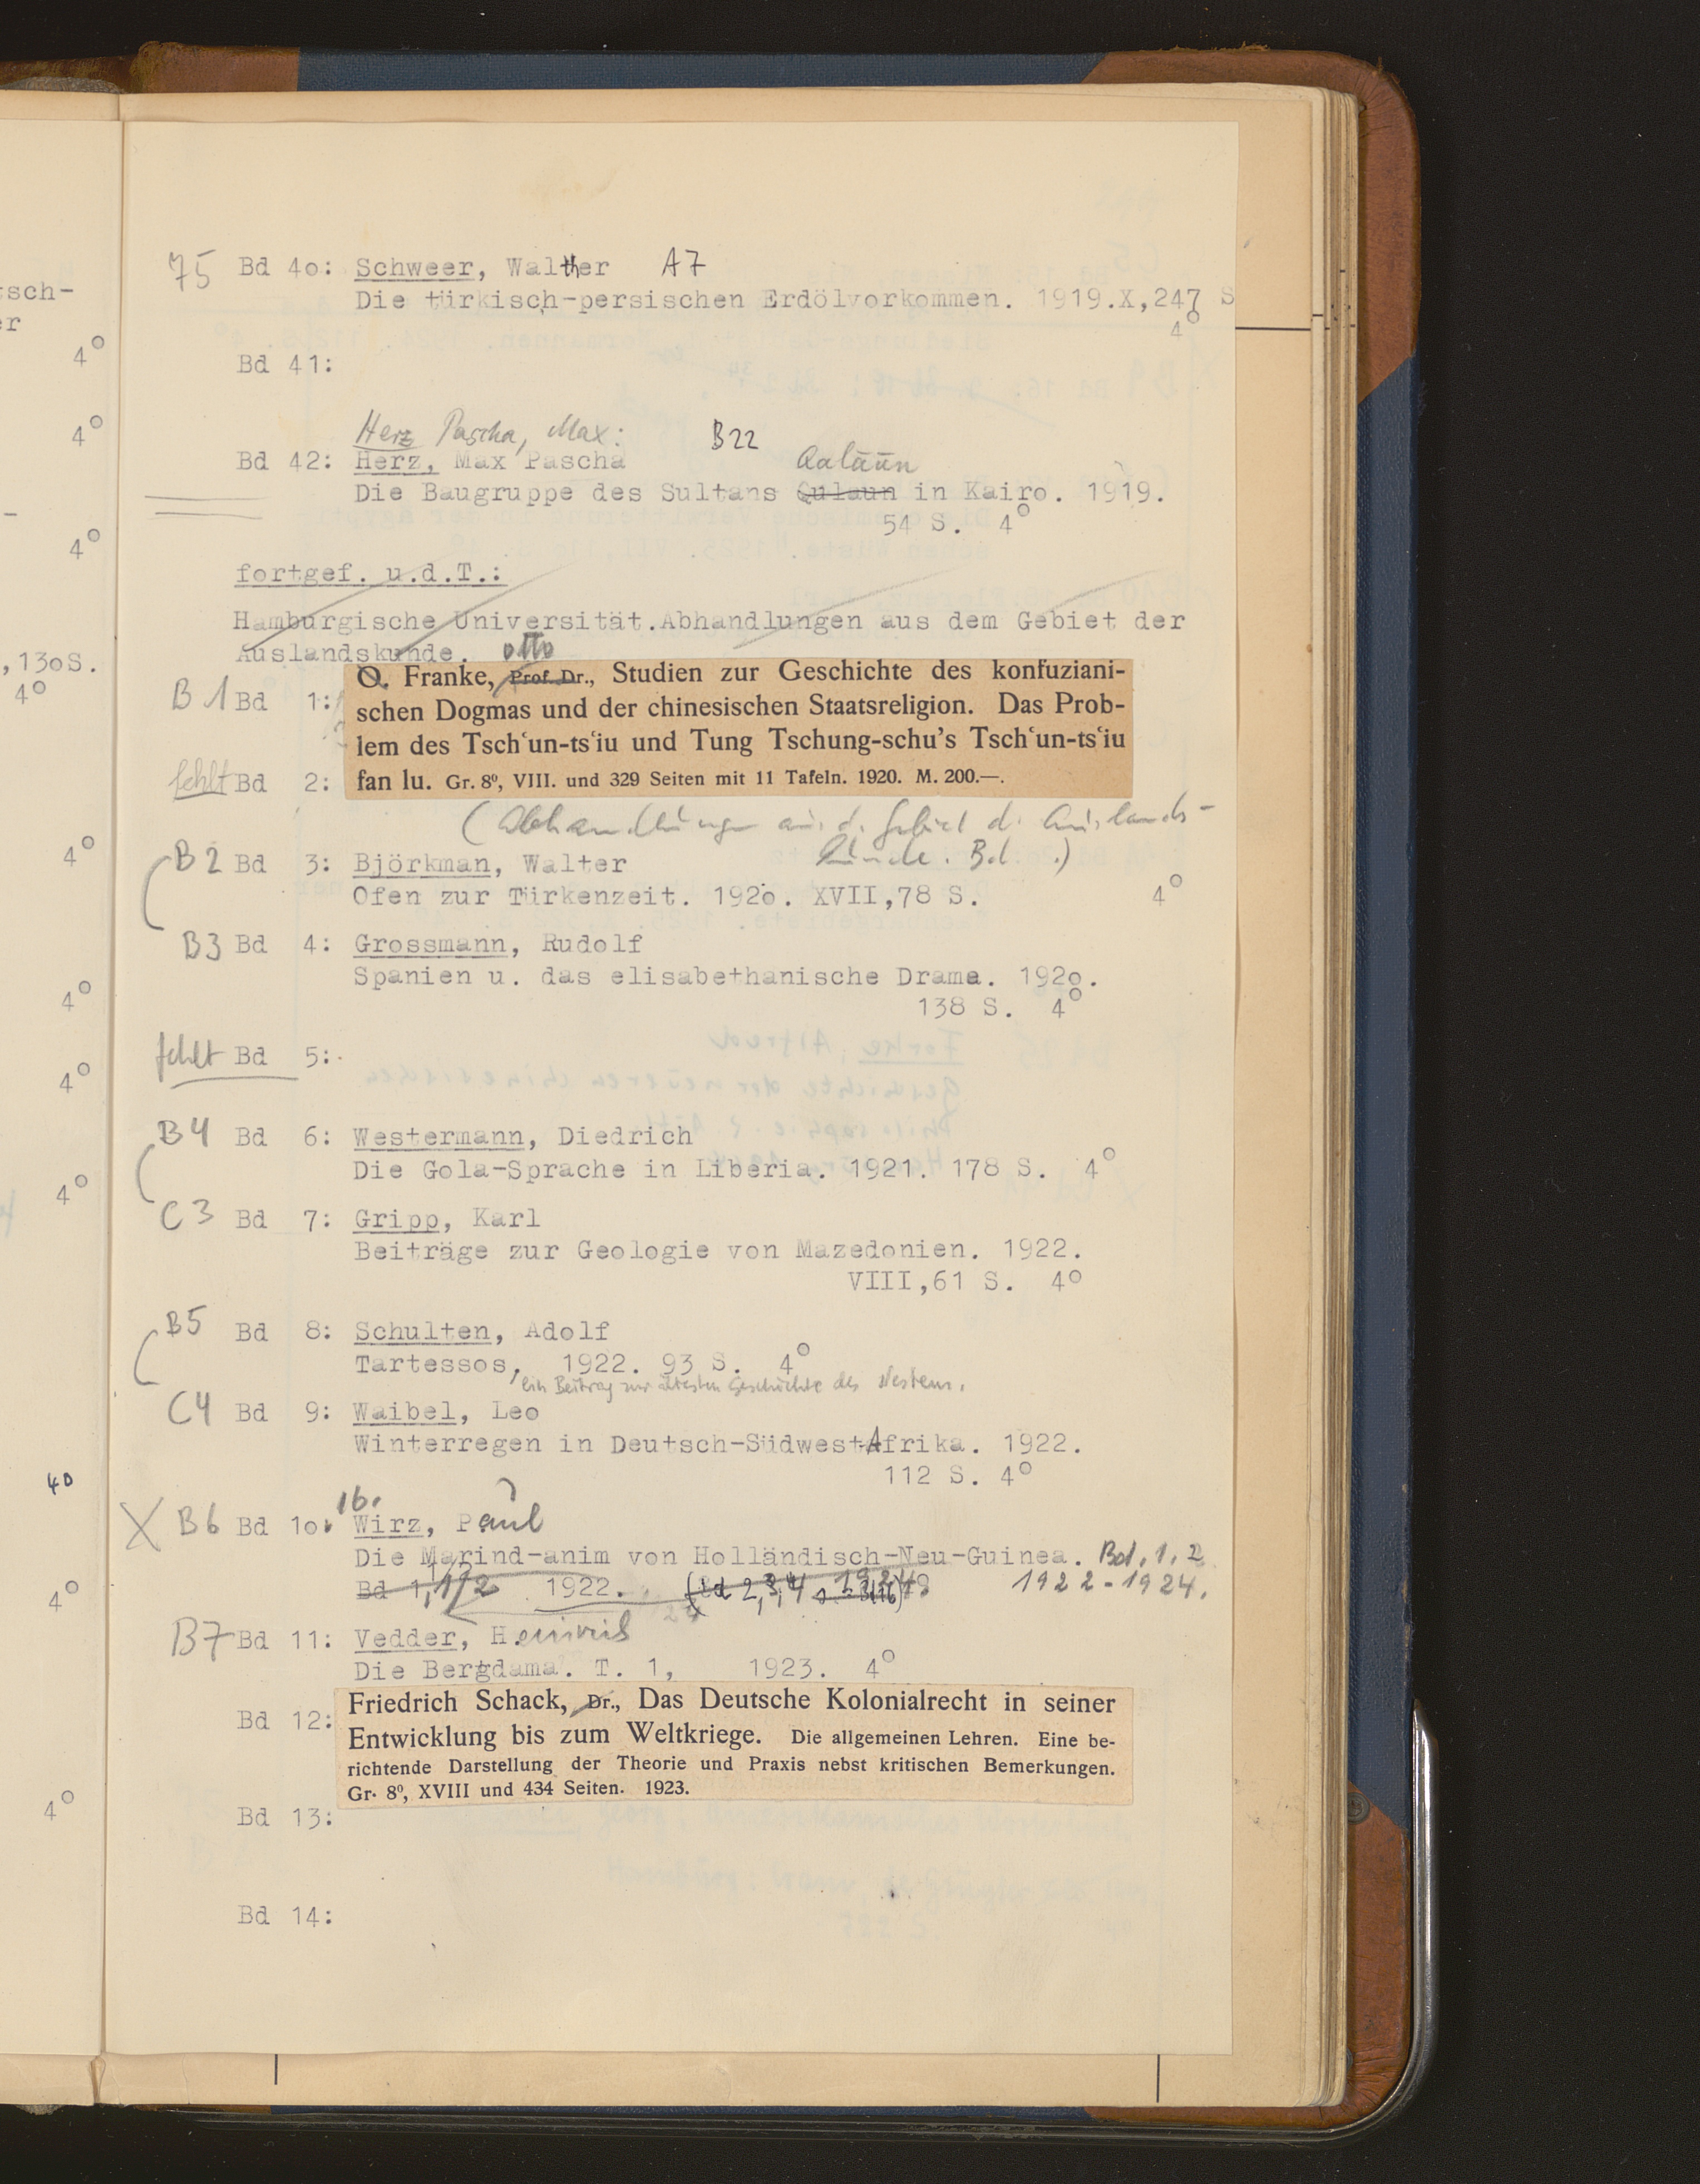 sch-
er
4°
4°
4°
, 130S.
4°
4°
4°
4°
4°
40
4°
4°
75 Bd 4o: Schweer, Walther A7
Die türkisch-persischen Erdölvorkommen. 1919.X,247 S
4°
Bd 41:
Herz Pascha, Max: B22
Bd 42: Herz, Max Pascha Qalāūn
Die Baugruppe des Sultans Qulaun in Kairo. 1919.
54 S. 4°
fortgef. u.d.T.:
Hamburgische Universität.Abhandlungen aus dem Gebiet der
Auslandskunde. Otto
B 1 Bd 1: O. Franke, Prof. Dr., Studien zur Geschichte des konfuziani-
schen Dogmas und der chinesischen Staatsreligion. Das Prob-
lem des Tschʻun-tsʻiu und Tung Tschung-schu's Tschʻun-tsʻiu
fehlt Bd 2: fan lu. Gr. 8°, VIII. und 329 Seiten mit 11 Tafeln. 1920. M. 200.—.
(Abhandlungen aus d. Gebiet d. Auslands-
kunde. Bd. .)
B2 Bd 3: Björkman, Walter
Ofen zur Türkenzeit. 192o. XVII,78 S. 4°
B3 Bd 4: Grossmann, Rudolf
Spanien u. das elisabethanische Drama. 192o.
138 S. 4°
fehlt Bd 5:
B4 Bd 6: Westermann, Diedrich
Die Gola-Sprache in Liberia. 1921. 178 S. 4°
C3 Bd 7: Gripp, Karl
Beiträge zur Geologie von Mazedonien. 1922.
VIII,61 S. 4°
B5 Bd 8: Schulten, Adolf
Tartessos, 1922. 93 S. 4°
ein Beitrag zur ältesten Geschichte des Westens.
C4 Bd 9: Waibel, Leo
Winterregen in Deutsch-SüdwestAfrika. 1922.
112 S. 4°
16.
X B6 Bd 1o: Wirz, Paul
Die Marind-anim von Holländisch-Neu-Guinea. Bd. 1, 2
Bd 1,1/2 1922. 1922-1924.
B7 Bd 11: Vedder, Heinrich
Die Bergdama. T. 1, 1923. 4°
Bd 12: Friedrich Schack, Dr., Das Deutsche Kolonialrecht in seiner
Entwicklung bis zum Weltkriege. Die allgemeinen Lehren. Eine be-
richtende Darstellung der Theorie und Praxis nebst kritischen Bemerkungen.
Gr. 8°, XVIII und 434 Seiten. 1923.
Bd 13:
Bd 14: